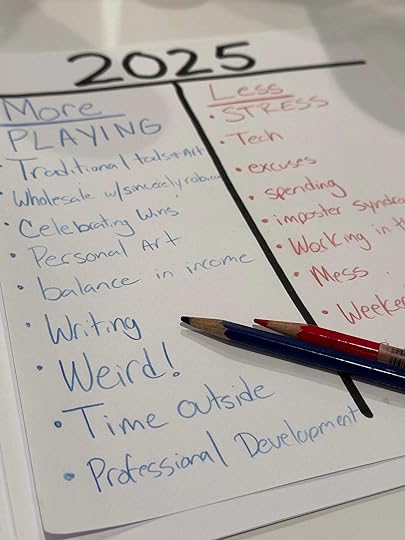 2025
More
PLAYING
• Traditional tools + Art
• Wholesale w/sincerely
• Celebrating Wins
• Personal Art
• balance in income
• Writing
• Weird!
• Time outside
• Professional Development
Less
• STRESS
• Tech
• excuses
• spending
• imposter syndro
• Working in
• Mess
• Weeke